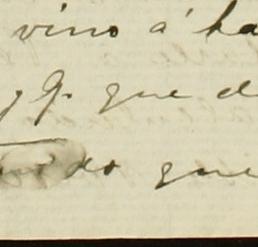 vino á ha
y J. que d
do que